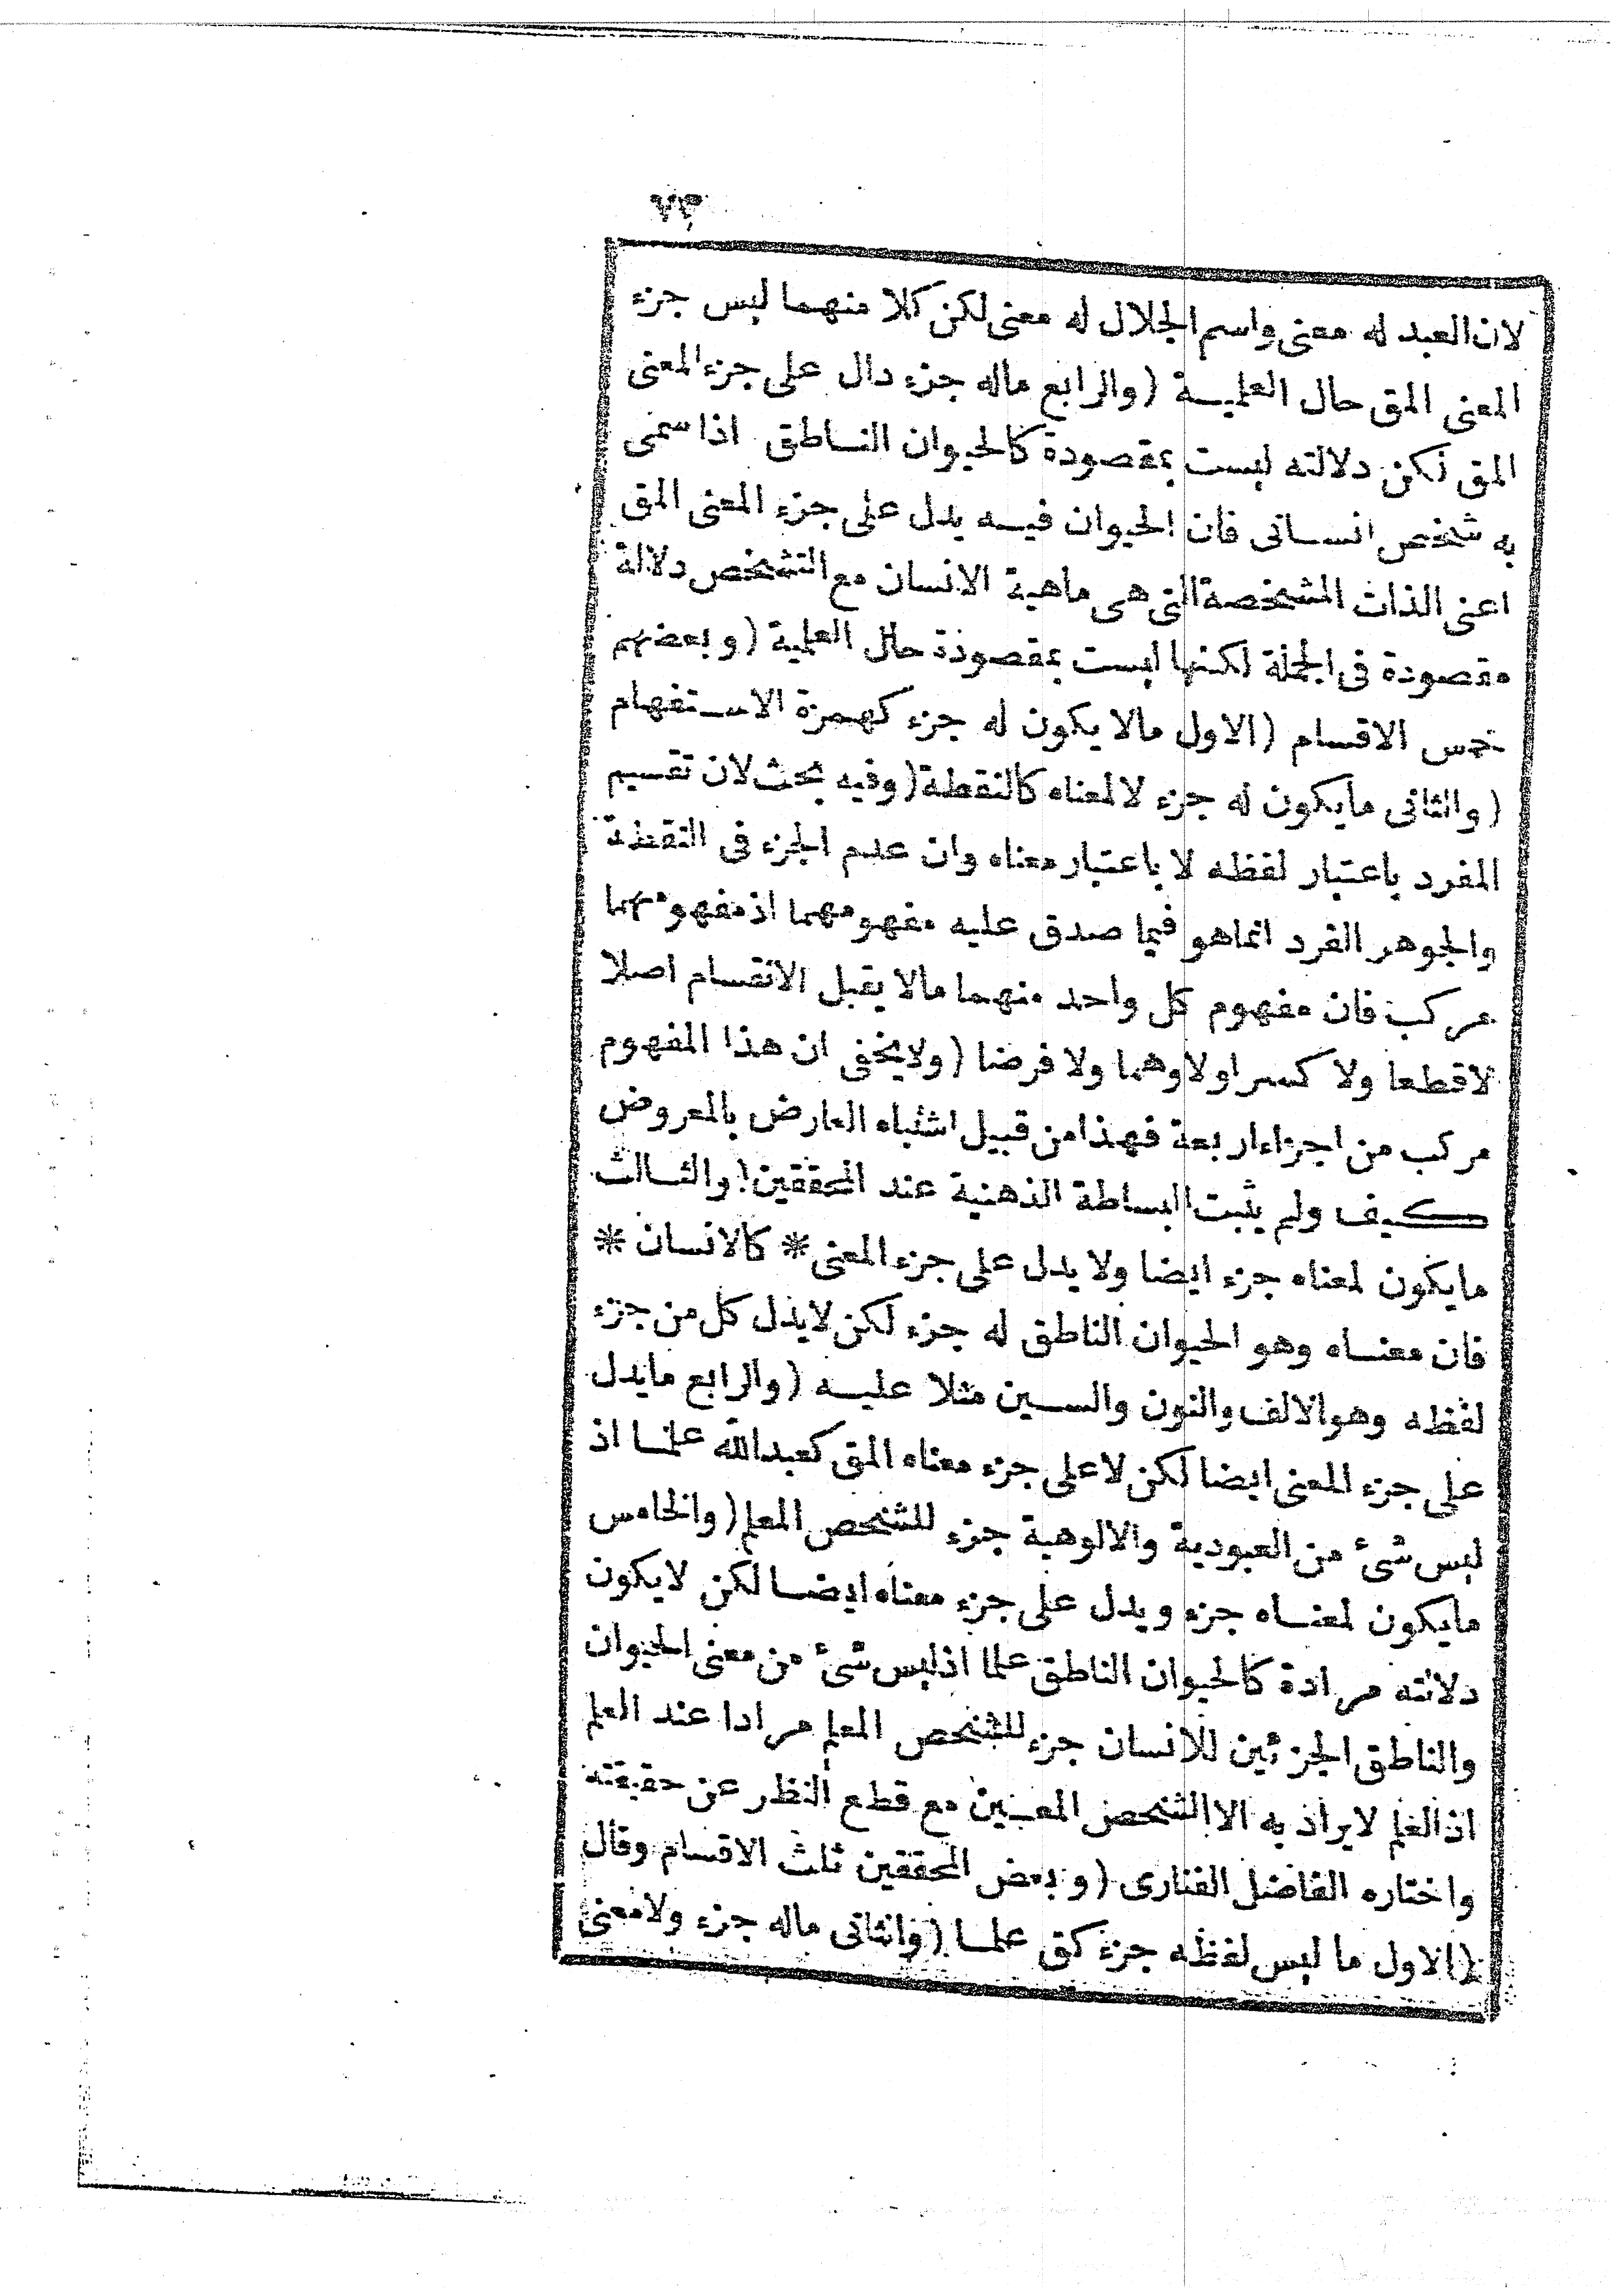 لان العبد له معنى واسم الجلال له معنى لكن كلا منهما ليس جزء
المعنى المق حال العلمية (والرابع ماله جزء دال على جزء المعنى
المق لكن دلالته ليست بمقصودة كالحيوان الناطق اذا سمى
به شخص انسانى فان الحيوان فيه يدل على جزء المعنى المق
اعنى الذات المشخصة التى هى ماهية الانسان مع التشخص دلالة
مقصودة فى الجملة لكنها ليست بمقصودة حال العلمية (وبعضهم
خمس الاقسام (الاول مالا يكون له جزء كهمزة الاستفهام
(والثانى مايكون له جزء لا لمعناه كالنقطة (وفيه بحث لان تقسيم
المفرد باعتبار لفظه لا باعتبار معناه وان عدم الجزء فى النقطة
والجوهر الفرد انماهو فيما صدق عليه مفهومهما اذ مفهومهما
مركب فان مفهوم كل واحد منهما مالا يقبل الانقسام اصلا
لاقطعا ولا كسرا ولا وهما ولا فرضا (ولايخفى ان هذا المفهوم
مركب من اجزاء اربعة فهذا من قبيل اشتباه العارض بالمعروض
كيف ولم يثبت البساطة الذهنية عند المحققين (والثالث
مايكون لمعناه جزء ايضا ولا يدل على جزء المعنى * كالانسان *
فان معناه وهو الحيوان الناطق له جزء لكن لايدل كل من جزء
لفظه وهو الالف والنون والسين مثلا عليه (والرابع مايدل
على جزء المعنى ايضا لكن لا على جزء معناه المق كعبدالله علما اذ
ليس شئ من العبودية والالوهية جزء للشخص المعلم (والخامس
مايكون لمعناه جزء ويدل على جزء معناه ايضا لكن لايكون
دلالته مرادة كالحيوان الناطق علما اذ ليس شئ من معنى الحيوان
والناطق الجزئين للانسان جزء للشخص المعلم مرادا عند العلم
اذ العلم لايراد به الا الشخص المعين مع قطع النظر عن حقيقته
واختاره الفاضل الفنارى (وبعض المحققين ثلث الاقسام وقال
(الاول ما ليس لفظه جزء كق علما (والثانى ماله جزء ولا معنى